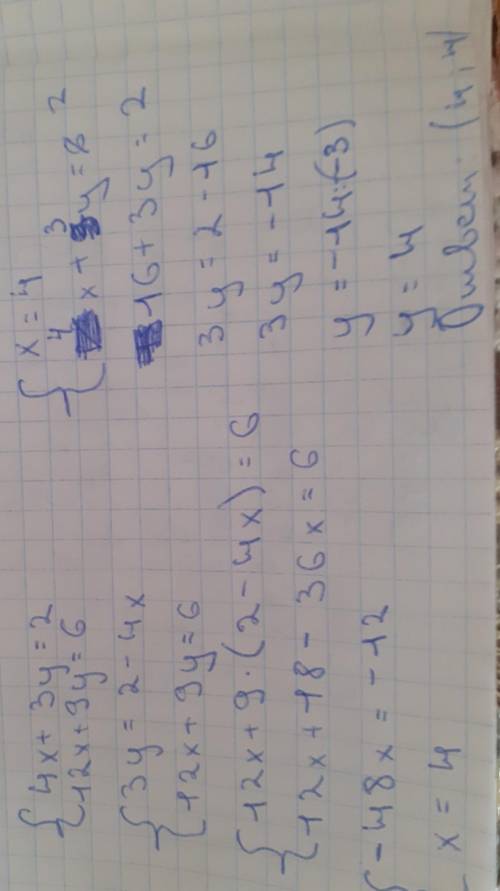 {4x + 3y = 2
12x + 9y = 6
{3y = 2 - 4x
12x + 9y = 6
{12x + 9 · (2 - 4x) = 6
12x + 18 - 36x = 6
{-48x = -12
x = 4
{x = 4
4x + 3y = 2
16 + 3y = 2
3y = 2 - 16
3y = -14
y = -14:(-3)
y = 4
Ответ: (4; 4)